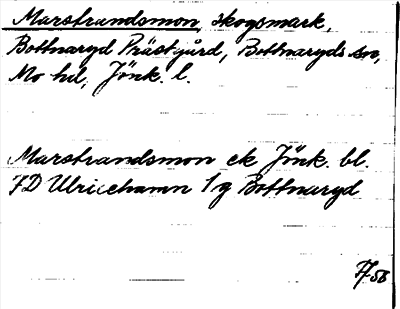 Marstrandsmon, skogsmark,
Bottnaryd Prästgård, Bottnaryds sn,
Mo hd, Jönk. l.
Marstrandsmon ek Jönk. bl.
7D Ulricehamn 1g Bottnaryd